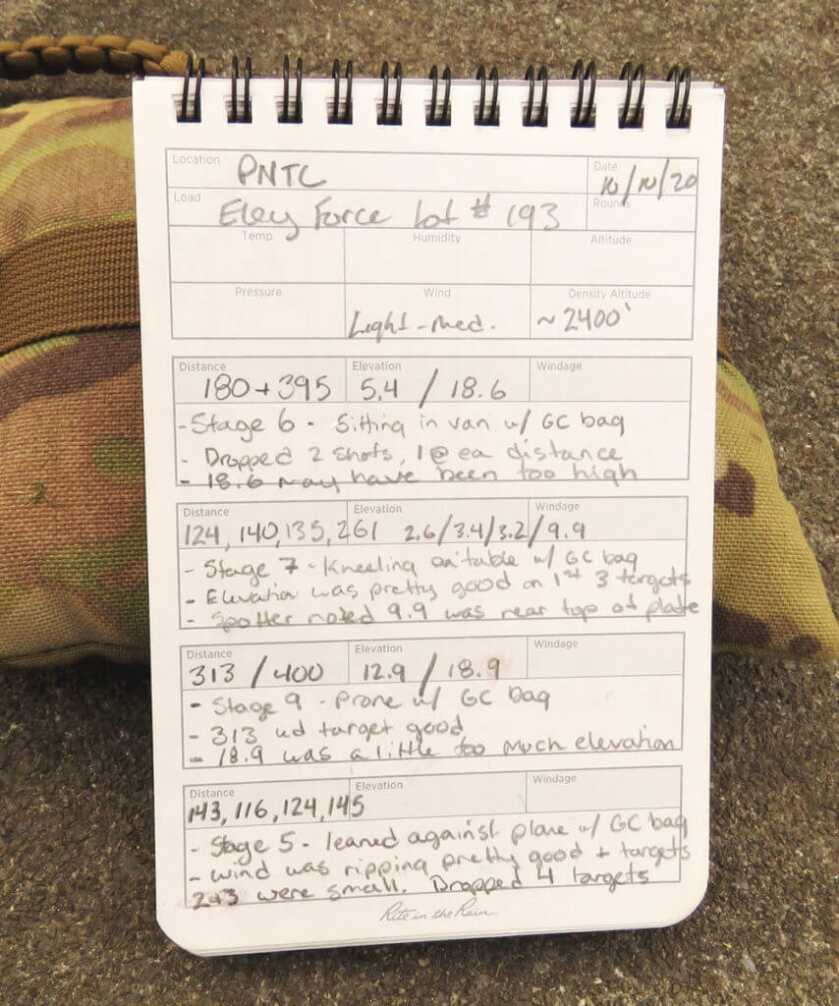 Location PNTC Date 10/10/20
Load Eley Force Lot # 193 Rounds
Temp Humidity Altitude
Pressure Wind Density Altitude
Light-Med. ~2400'
Distance Elevation Windage
180+395 5.4 / 18.6
-Stage 6 - Sitting in van w/ GC bag
- Dropped 2 shots, 1@ ea distance
- 18.6 may have been too high
Distance Elevation Windage
124, 140, 135, 261 2.6/3.4/3.2/9.9
- Stage 7 - Kneeling on table w/ GC bag
- Elevation was pretty good on 1st 3 targets
- Spotter noted 9.9 was near top of plate
Distance Elevation Windage
313 / 400 12.9 / 18.9
- Stage 9 - Prone w/ GC bag
- 313 yd target good
- 18.9 was a little too much elevation
Distance Elevation Windage
143, 116, 124, 145
- Stage 5 - leaned against plane w/ GC bag
- wind was ripping pretty good + targets
2+3 were small. Dropped 4 targets
Rite in the Rain